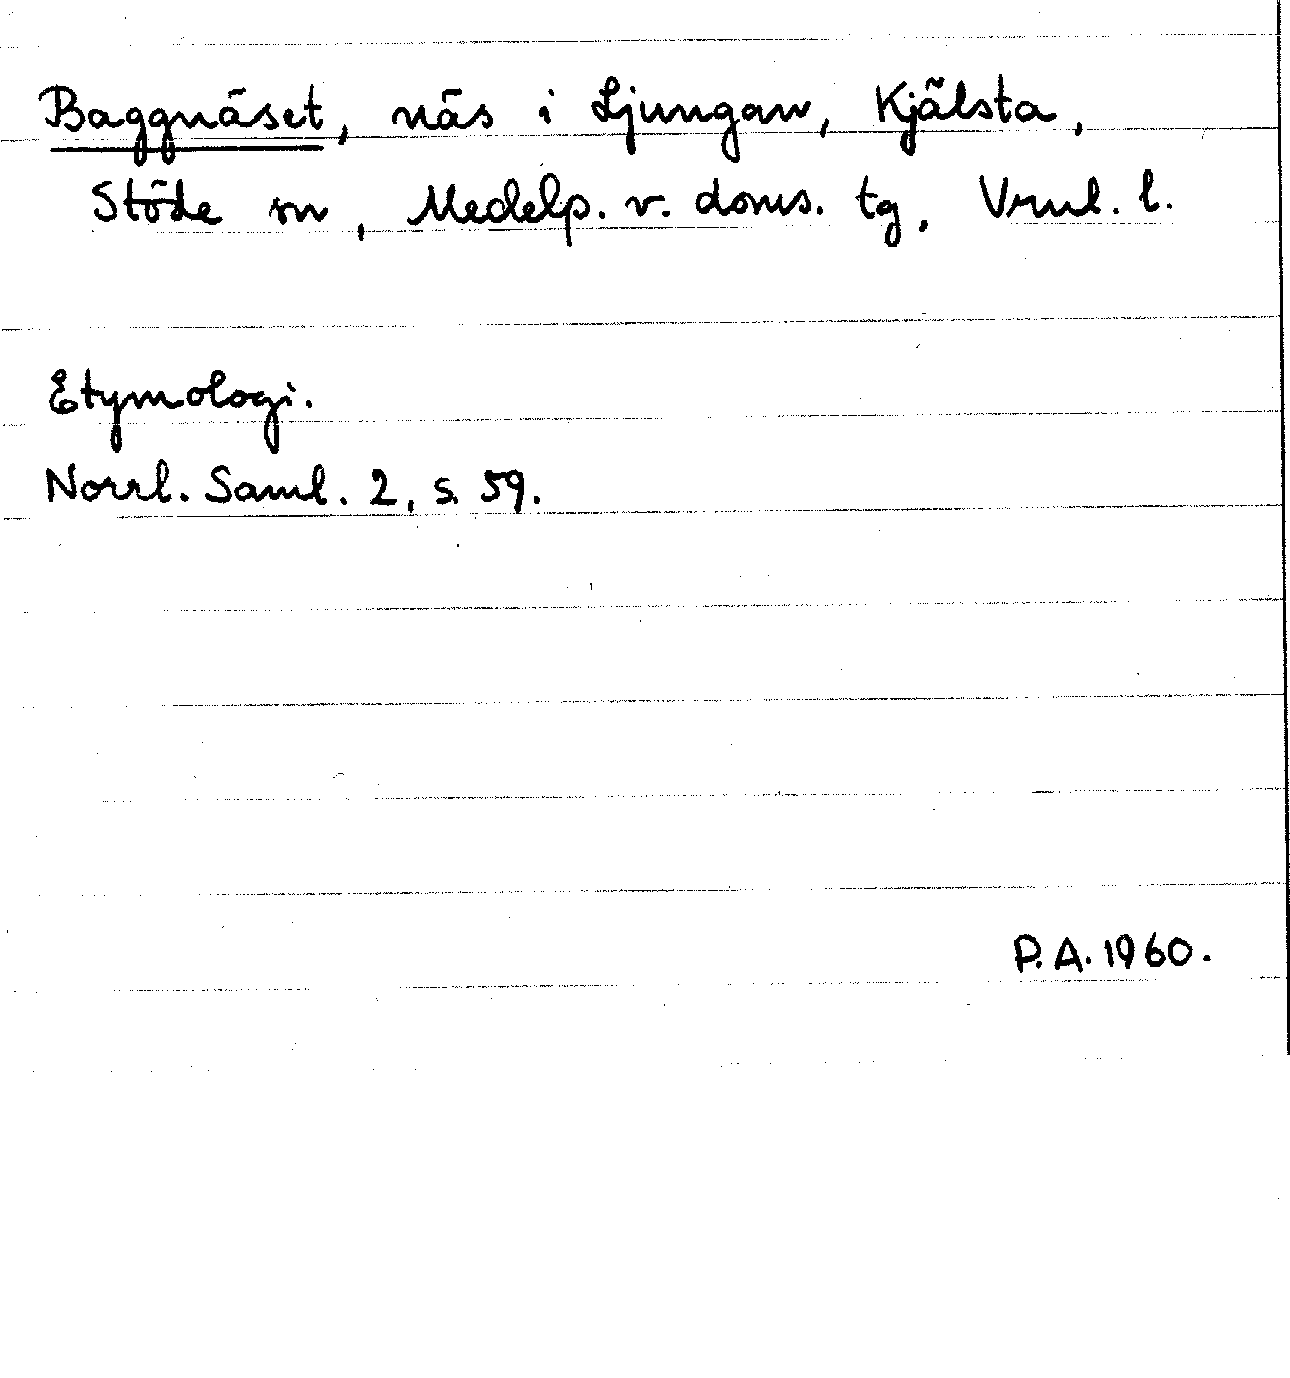 Baggnäset, näs i Ljungan, Kjälsta,
Stöde sn, Medelp. v. doms. tg, Vrnl. l.
Etymologi.
Norrl. Saml. 2, s. 59.
P.A. 1960.